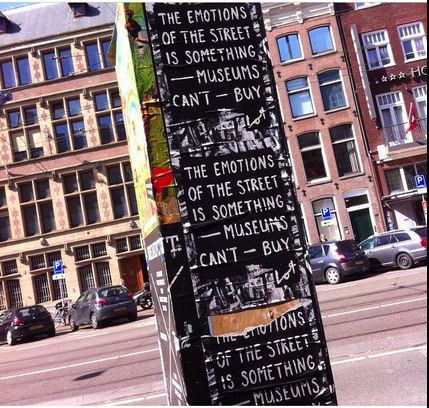 THE EMOTIONS
OF THE STREET
IS SOMETHING
— MUSEUMS
CAN'T — BUY
THE EMOTIONS
OF THE STREET
IS SOMETHING
— MUSEUMS
CAN'T — BUY
THE EMOTIONS
OF THE STREET
IS SOMETHING
— MUSEUMS
★★★ HO
P
P
P